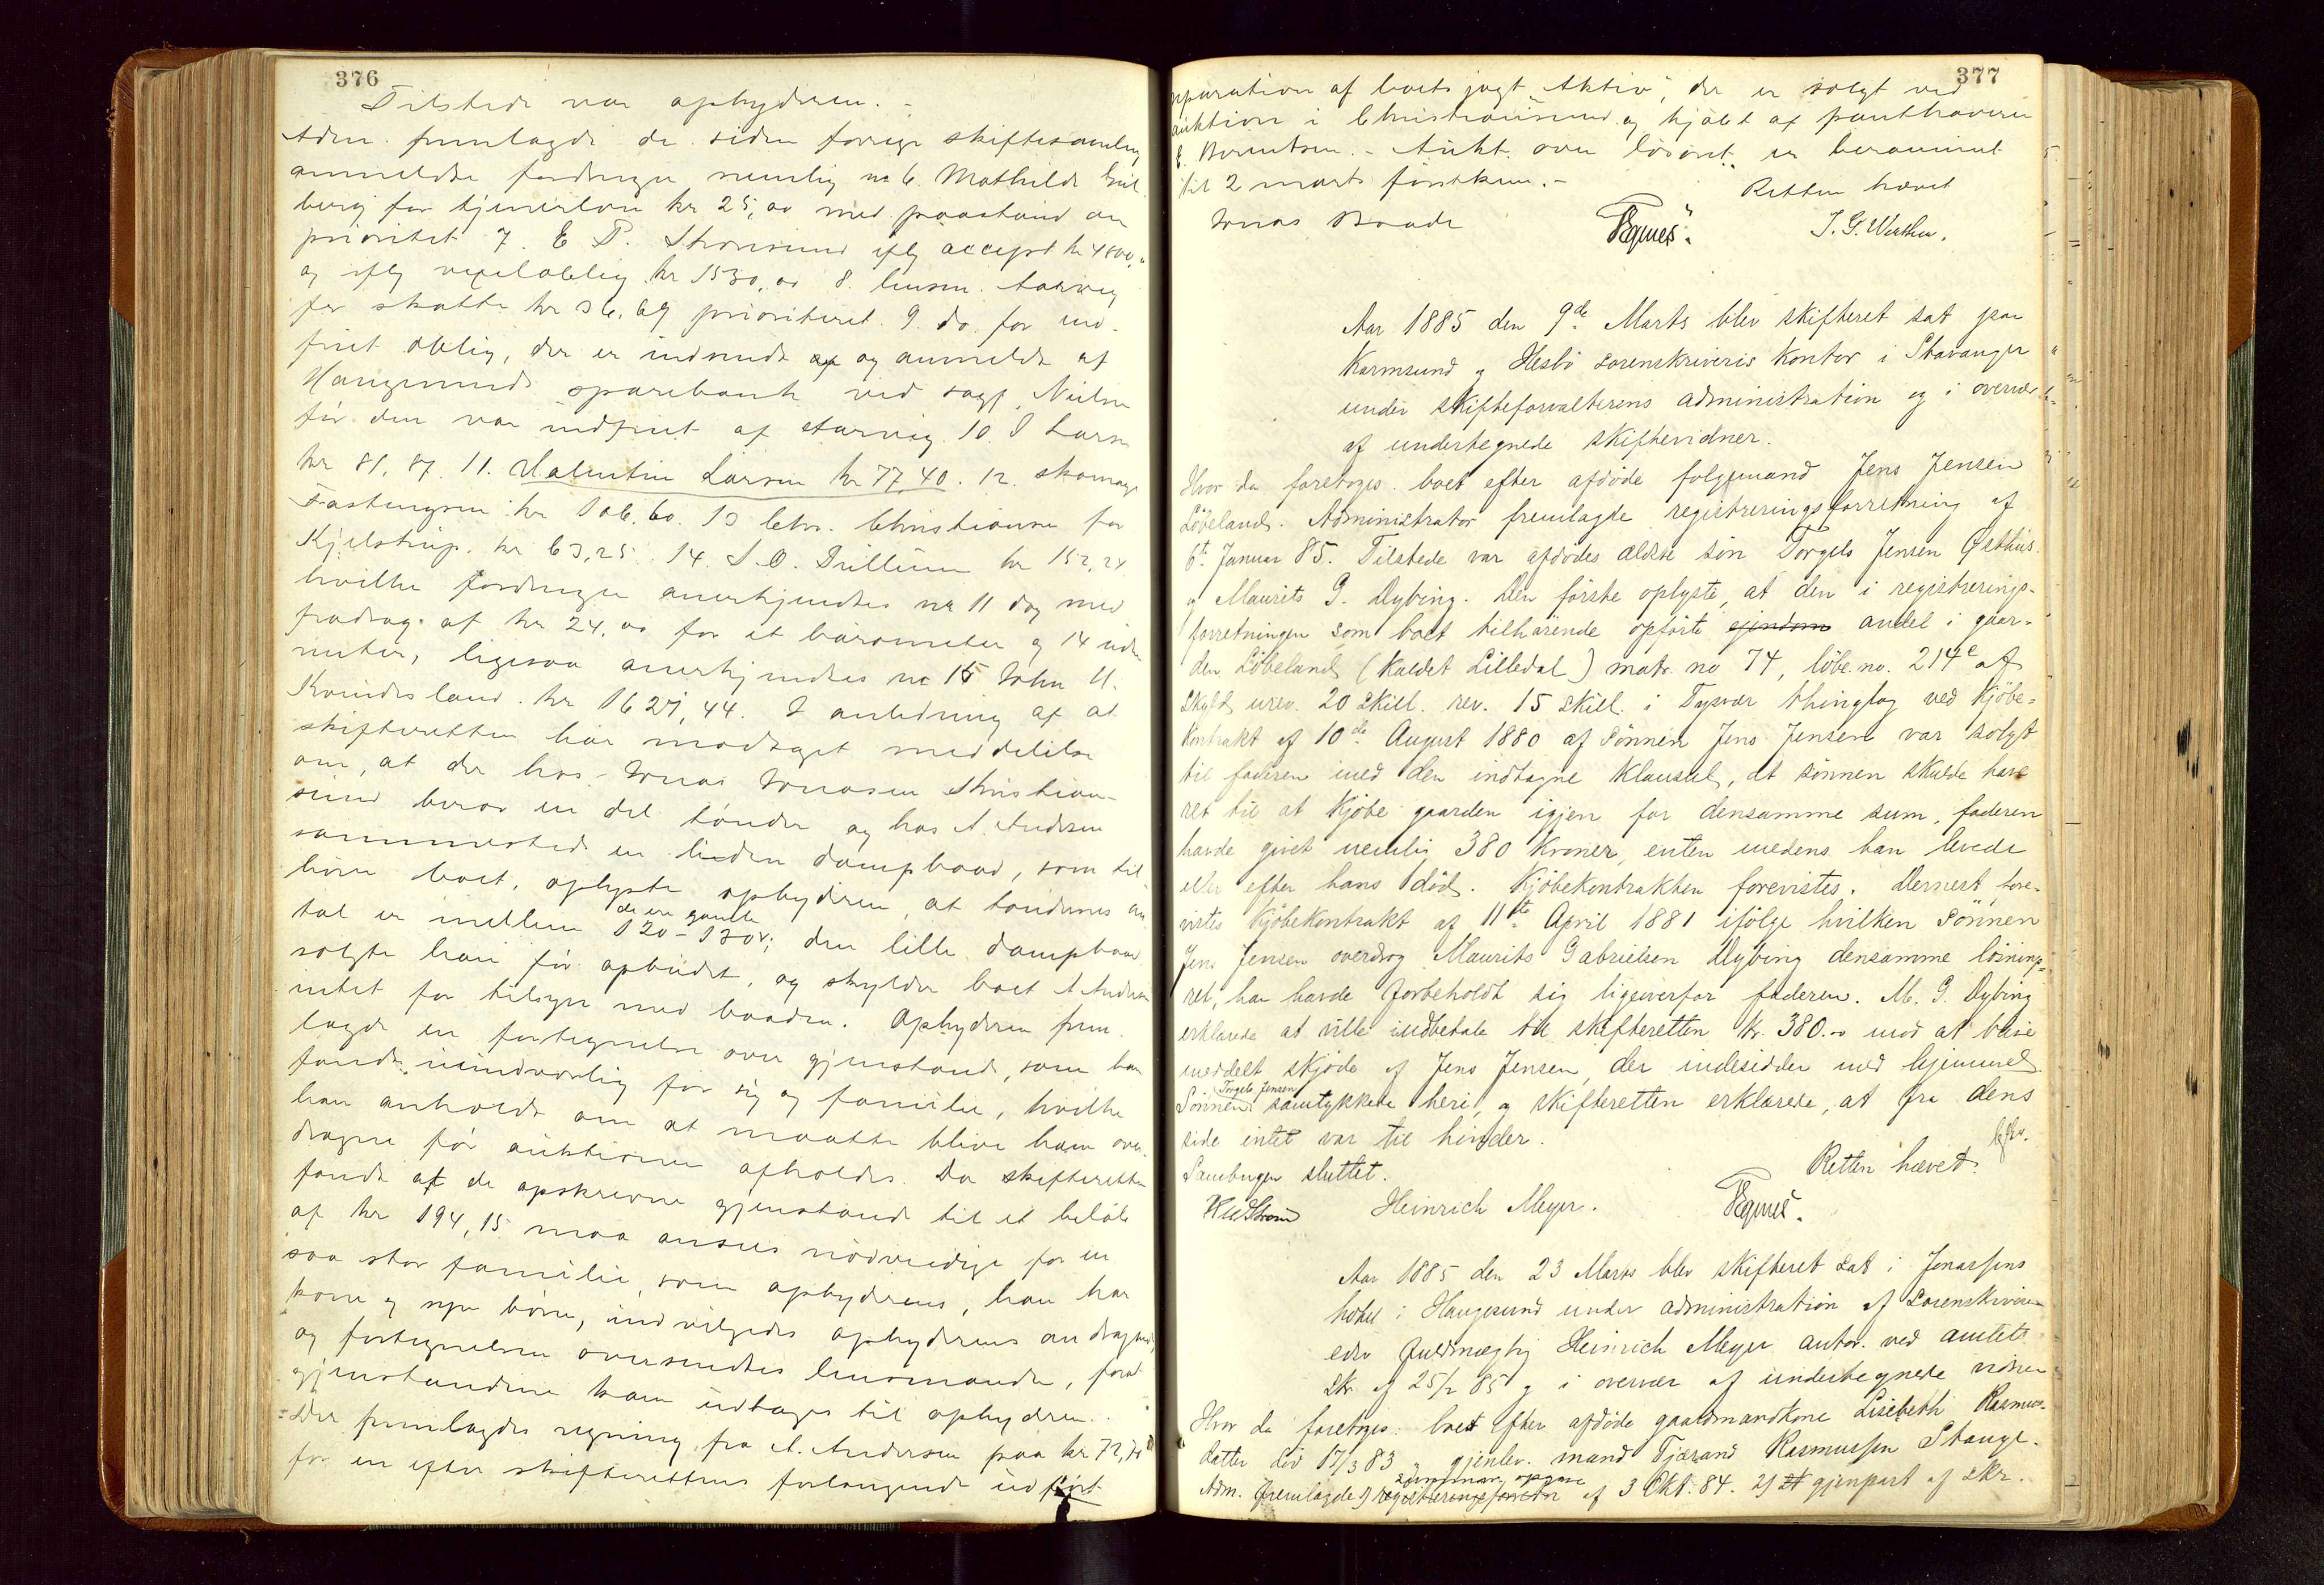 376
Tilstede var opbyderen. -
Adm. fremlagde de siden forrige skiftesamling
anmeldte fordringer nemlig no 6. Mathilde
berg for tjenerløn kr 25,00 med paastand om
prioritet 7. E P. ifølg accept kr 4800,"
og iflg vexeloblig. kr 1530,00 8. lensm. Aarvig
for skatte kr 36,69 prioriteret. 9 do. for ind-
friet oblig, der er indsendt og anmeldt af
Haugesunds sparebank ved sagf. Nielsen
før den var indfriet af Aarvig. 10. I Larsen
kr 81,87. 11. Valentin Larsen kr 77,40. 12. skomager
Fastingsen kr 106,60. 13 Chr. Christiansen for
Kjelstrup. kr 63,25. 14. kr 152,24
hvilke fordringer anerkjendtes no 11 dog med
fradrag af kr 24,00 for et barometer og 14 uden
renter, ligesaa anerkjendtes no 15 John H.
Kvindesland. kr 1627,44. I anledning af at
skifteretten har modtaget meddelelse
om, at der hos Jonas Jonasen Kristian-
sund beror en del tønder og hos A. Andersen
sammesteds en liden dampbaad, som til-
hører boet, oplyste opbyderen, at tøndernes an
de ere gamle
tal er mellem 120-130; den lille dampbaad
solgte han før opbudet, og skylder boet A Andersen
intet for tilsyn med baaden. Opbyderen frem-
lagde en fortegnelse over gjenstande, som han
fandt uundværlig for sig og familie, hvilke
han anholdt om at maatte blive ham over-
dragne før auktionen afholdes. Da skifteretten
fandt at de opskrevne gjenstande til et beløb
af kr 194,15 maa ansees nødvendige for en
saa stor familie, som opbyderens, han har
kone og syv børn, indvilgedes opbyderens andragende,
og fortegnelsen oversendtes lensmanden, forat
gjenstandene kan udtages til opbyderen.
Der fremlagdes regning fra A. Andersen paa kr 72,
for en efter skifterettens forlangende udført
377
reparation af boets jagt "Aktiv", der er solgt ved
auktion i Christiansund og kjøbt af panthaveren
Berentsen. - Aukt. over løsøret er berammet
til 2 marts førstkom. -
Retten hævet
Jonas Baade
J. G. Wærther.
Aar 1885 den 9de Marts blev skifteret sat paa
Karmsund og Hesbø sorenskriveris Kontor i Stavanger
under skifteforvalterens administration og i overvær
af undertegnede skiftevidner.
Hvor da foretoges boet efter afdøde folgemand Jens Jensen
Løbeland. Administrator fremlagde registreringsforretning af
6te Januar 85. Tilstede var afdødes ældste søn Torgels Jensen Østhus
og Maurits G. Dybing. Den første oplyste, at den i registrerings-
forretningen som boet tilhørende opførte ejendom andel i gaar-
den Løbeland (kaldet Lilledal) matr. no 74, løbe. no. 214c af
skyld urev. 20 skill. rev. 15 skill. i Tysvær thinglag ved Kjøbe-
kontrakt af 10de August 1880 af Sønnen Jens Jensen var solgt
til faderen med den indtagne klausul, at sønnen skulde have
ret til at Kjøbe gaarden igjen for densamme sum, faderen
havde givet nemlig 380 Kroner, enten medens han levede
eller efter hans død. Kjøbekontrakten forevistes. Dernest fore-
vistes Kjøbekontrakt af 11te April 1881 ifølge hvilken Sønnen
Jens Jensen overdrog Maurits Gabrielsen Dybing densamme løsnings-
ret, han havde forbeholdt sig ligeoverfor faderen. M. G. Dybing
erklærede at ville indbetale til skifteretten Kr. 380.00 mod at blive
meddelt skjøde af Jens Jensen, der indesidder med hjemmel.
Torgels Jensen
Sønnen samtykkede heri, og skifteretten erklærede, at fra dens
side intet var til hinder.
Samlingen sluttet.
Retten hævet.
Heinrich Meyer.
Aar 1885 den 23 Marts blev skifteret sat i Jonassens
hotel i Haugesund under administration af Sorenskriveren
edsv fuldmægtig Heinrich Meyer autor. ved amtets
skr. af 25/2 85 og i overvær af undertegnede vidner
Hvor da foretoges: boet efter afdøde gaardmandkone Lisebeth Rasmus-
datter død 17/3 83, gjenlev. mand Tjærand Rasmussen Stange.
summar. opgave
Adm. fremlagde 1) registreringsforretn af 3 Okt. 84. 2) gjenpart af skr.